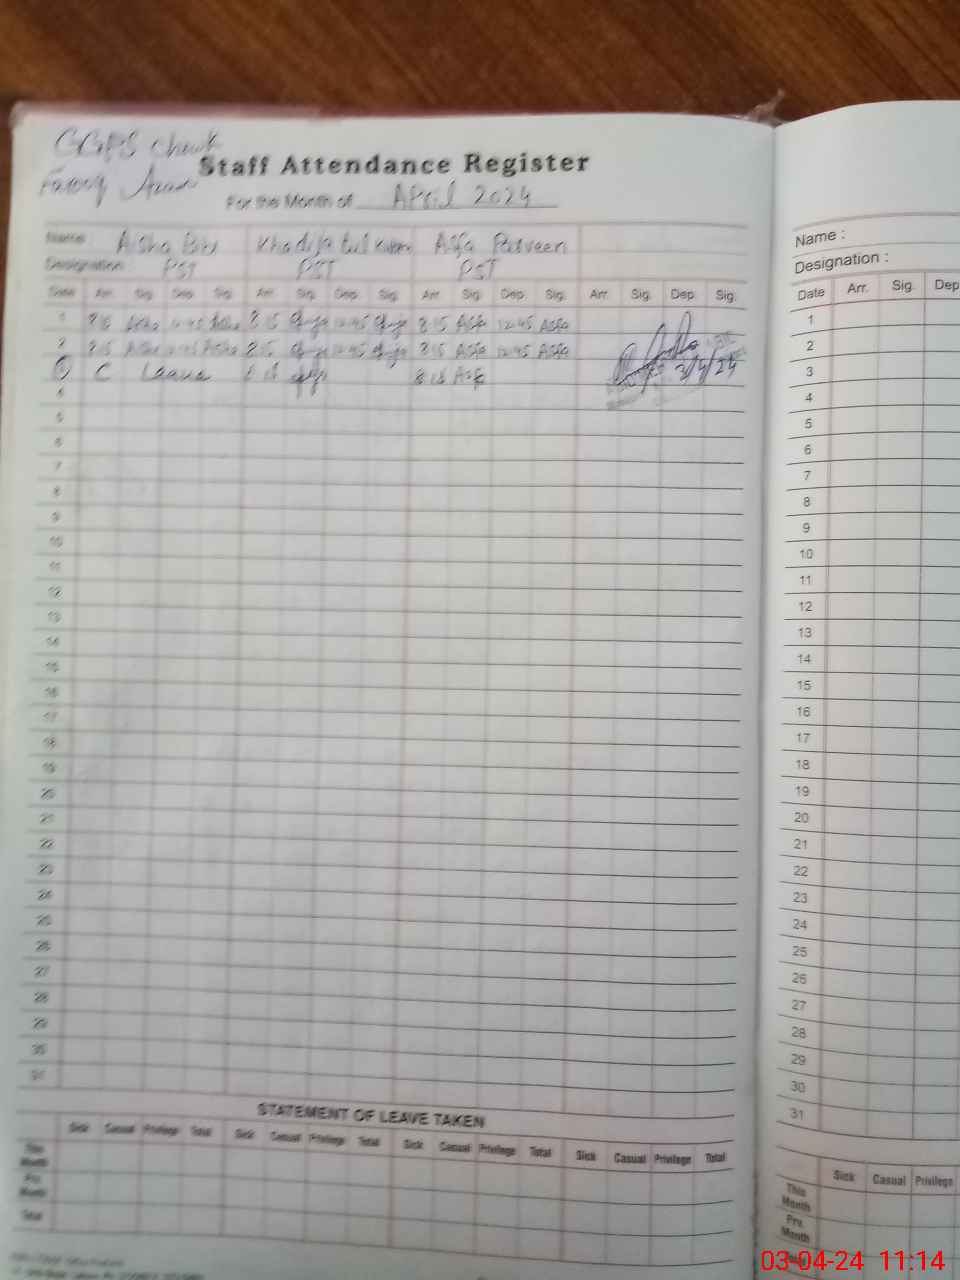 GGPS Chowk
Farooq Azam
Staff Attendance Register
For the Month of April 2024
Name Aisha Bibi Khadija tul Kubra Asfa Parveen
Designation PST PST PST
Date Arr. Sig. Dep. Sig. Arr. Sig. Dep. Sig. Arr. Sig. Dep. Sig. Arr. Sig. Dep. Sig.
1 8:15 Aisha 12:45 Aisha 8:15 12:45 8:15 Asfa 12:45 Asfa
2 8:15 Aisha 12:45 Aisha 8:15 12:45 8:15 Asfa 12:45 Asfa
3 C Leave 8:15 8:15 Asfa 3/4/24
4
5
6
7
8
9
10
11
12
13
14
15
16
17
18
19
20
21
22
23
24
25
26
27
28
29
30
31
STATEMENT OF LEAVE TAKEN
Sick Casual Privilege Total Sick Casual Privilege Total Sick Casual Privilege Total Sick Casual Privilege Total
This Month
Prv. Month
Total
Name :
Designation :
Date Arr. Sig. Dep
1
2
3
4
5
6
7
8
9
10
11
12
13
14
15
16
17
18
19
20
21
22
23
24
25
26
27
28
29
30
31
Sick Casual Privilege
This Month
Prv. Month
03-04-24 11:14